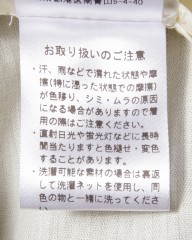 都港区南青山5-4-40
お取り扱いのご注意
・汗、雨などで濡れた状態や摩
擦(特に湿った状態での摩擦)
が色移り、シミ・ムラの原因
になる場合がありますので着
用の際はご注意ください。
・直射日光や蛍光灯などに長時
間当たりますと色褪せ・変色
することがあります。
・洗濯可能な素材の場合は裏返
して洗濯ネットを使用し、同
色の物と一緒に洗ってくださ
い